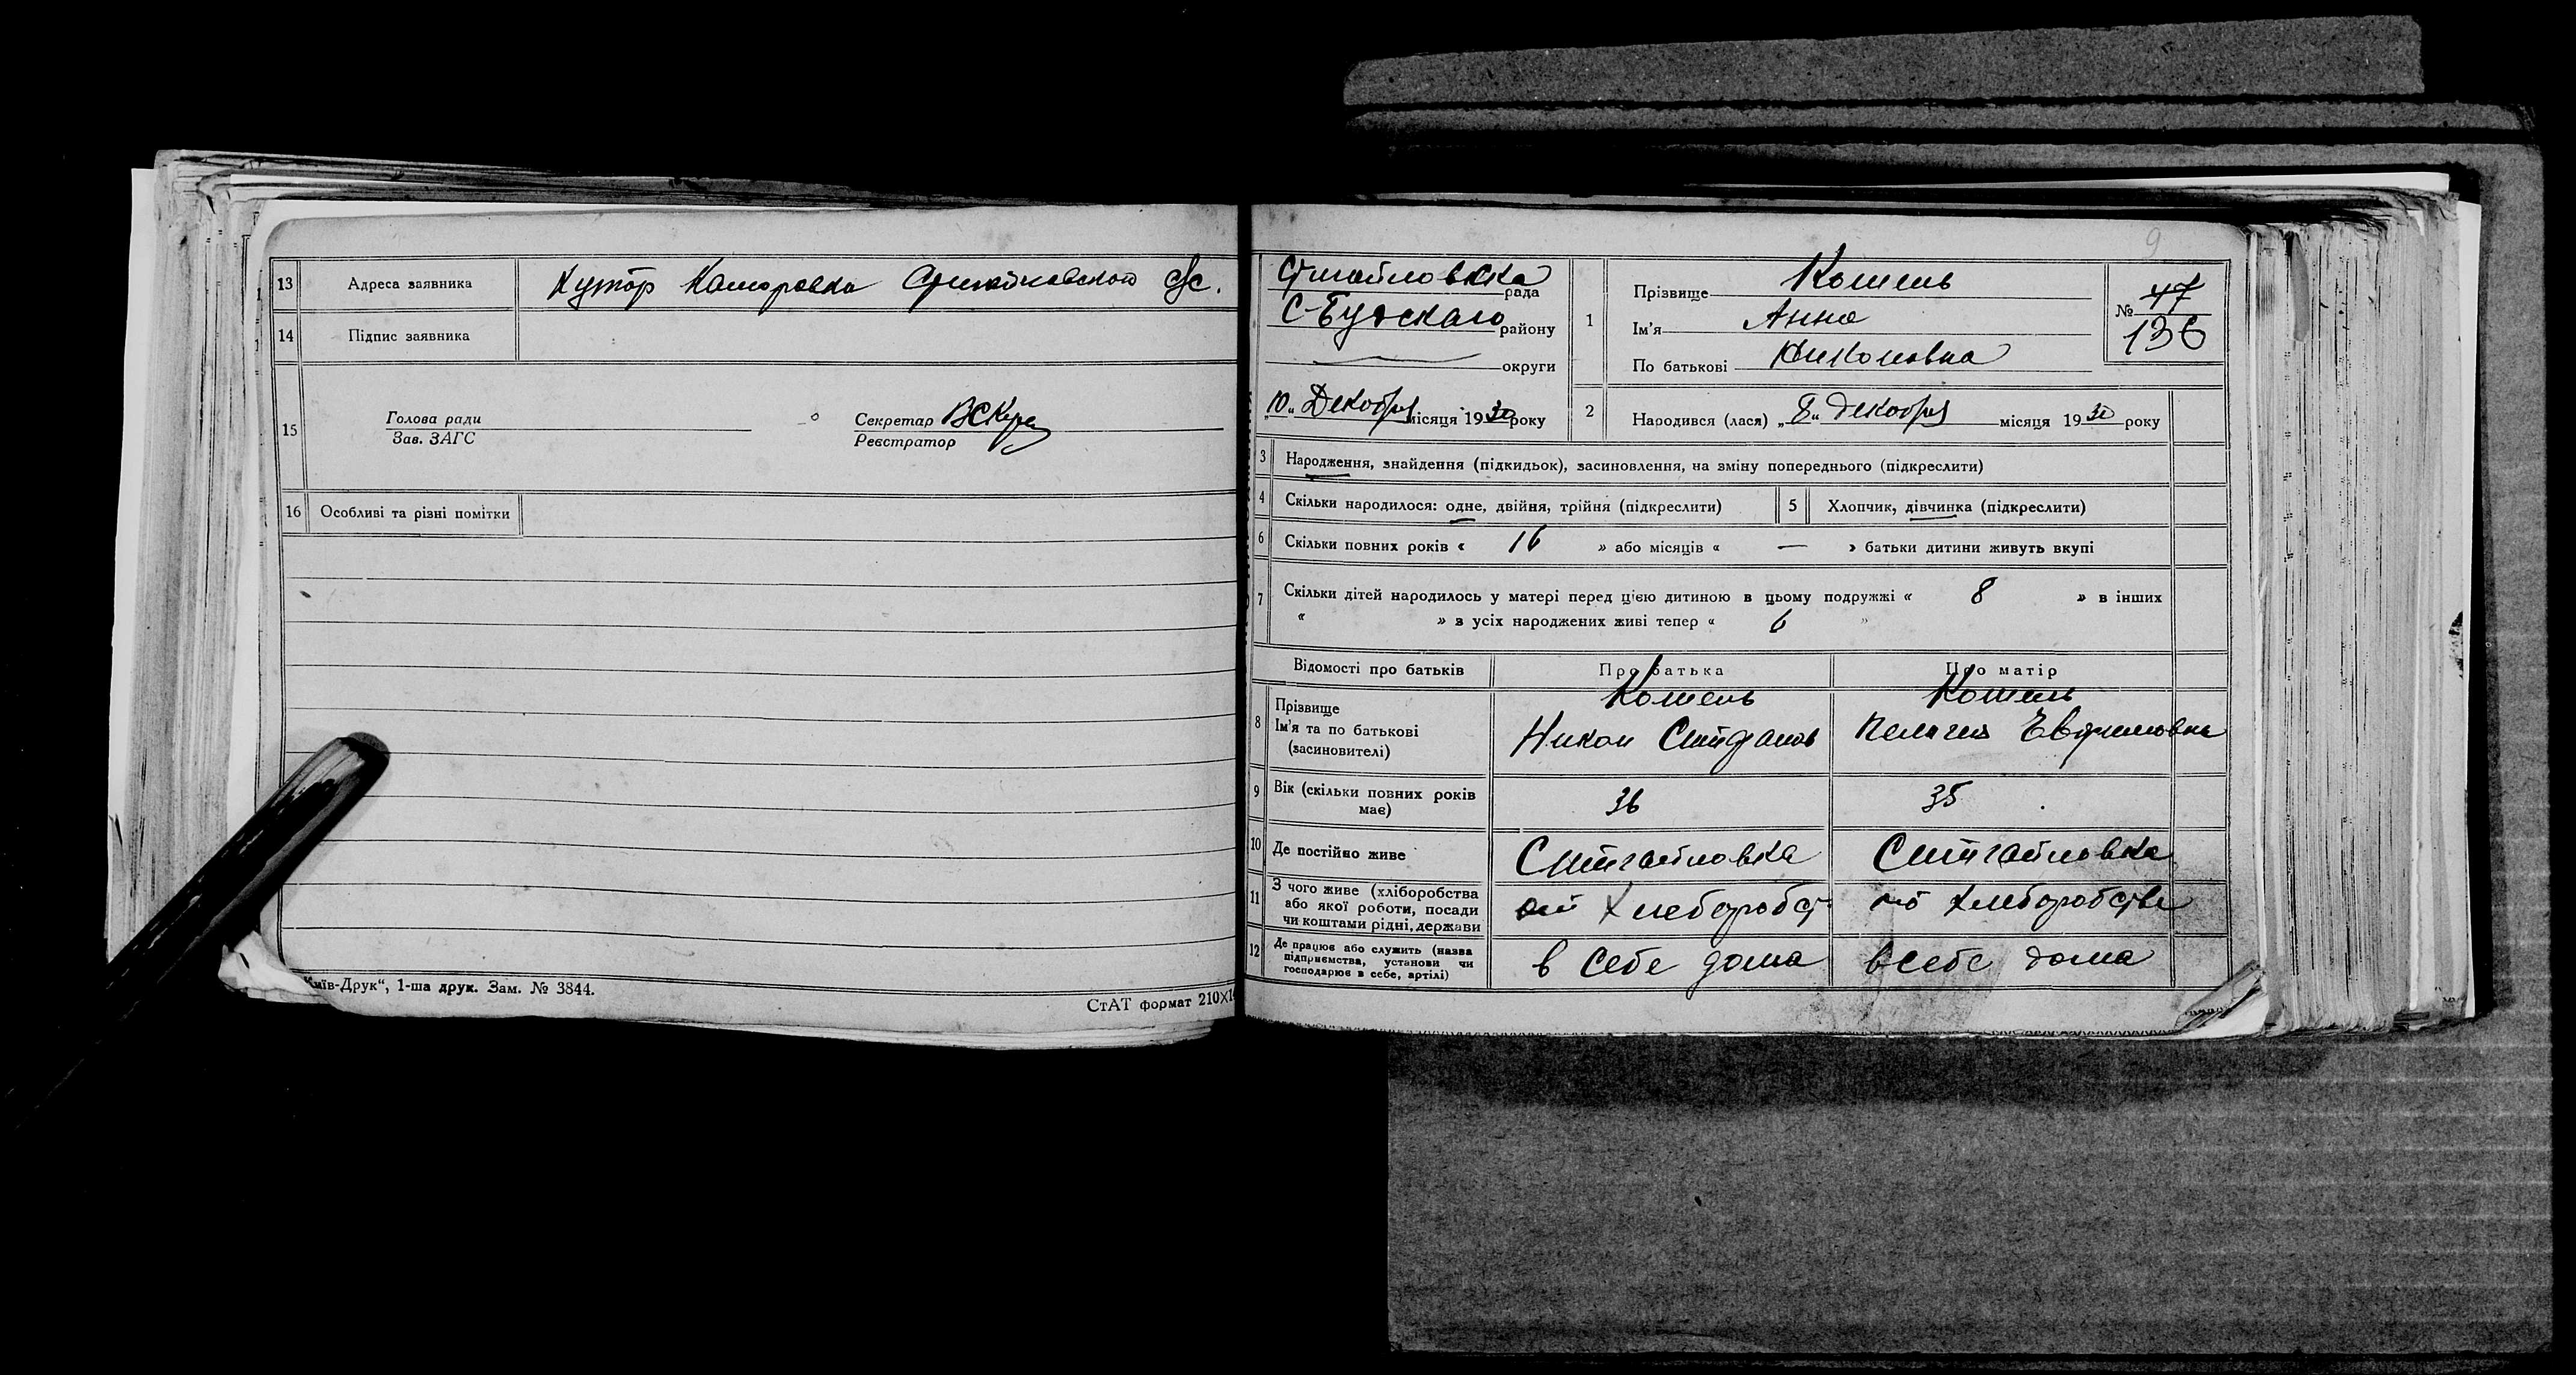 13 Адреса заявника Хутор Каморовка с/с.
14 Підпис заявника
15 Голова ради
Зав. ЗАГС
Секретар
Реєстратор
16 Особливі та різні помітки
"Київ-Друк“, 1-ша друк. Зам. № 3844.
СтАТ формат 210X1
9
рада
С-Будскаго району
округи
„10„ Декабря місяця 1930 року
1 Прізвище Кошень
Ім'я Анна
По батькові Никоновна
№ 47
136
2 Народився (лася) „8„ декабря місяця 1930 року
3 Народження, знайдення (підкидьок), засиновлення, на зміну попереднього (підкреслити)
4 Скільки народилося: одне, двійня, трійня (підкреслити)
5 Хлопчик, дівчинка (підкреслити)
6 Скільки повних років « 16 » або місяців « — » батьки дитини живуть вкупі
7 Скільки дітей народилось у матері перед цією дитиною в цьому подружжі « 8 » в інших
« » з усіх народжених живі тепер « 6 »
Відомості про батьків Про батька Про матір
8 Прізвище
Ім'я та по батькові
(засиновителі)
Кошень
Никон
Кошень
Пелагия Евфимовна
9 Вік (скільки повних років
має)
36
35
10 Де постійно живе
11 З чого живе (хліборобства
або якої роботи, посади
чи коштами рідні, держави
от Хлеборобст
от хлеборобства
12 Де працює або служить (назва
підприємства, установи чи
господарює в себе, артілі)
в себе дома
в себе дома